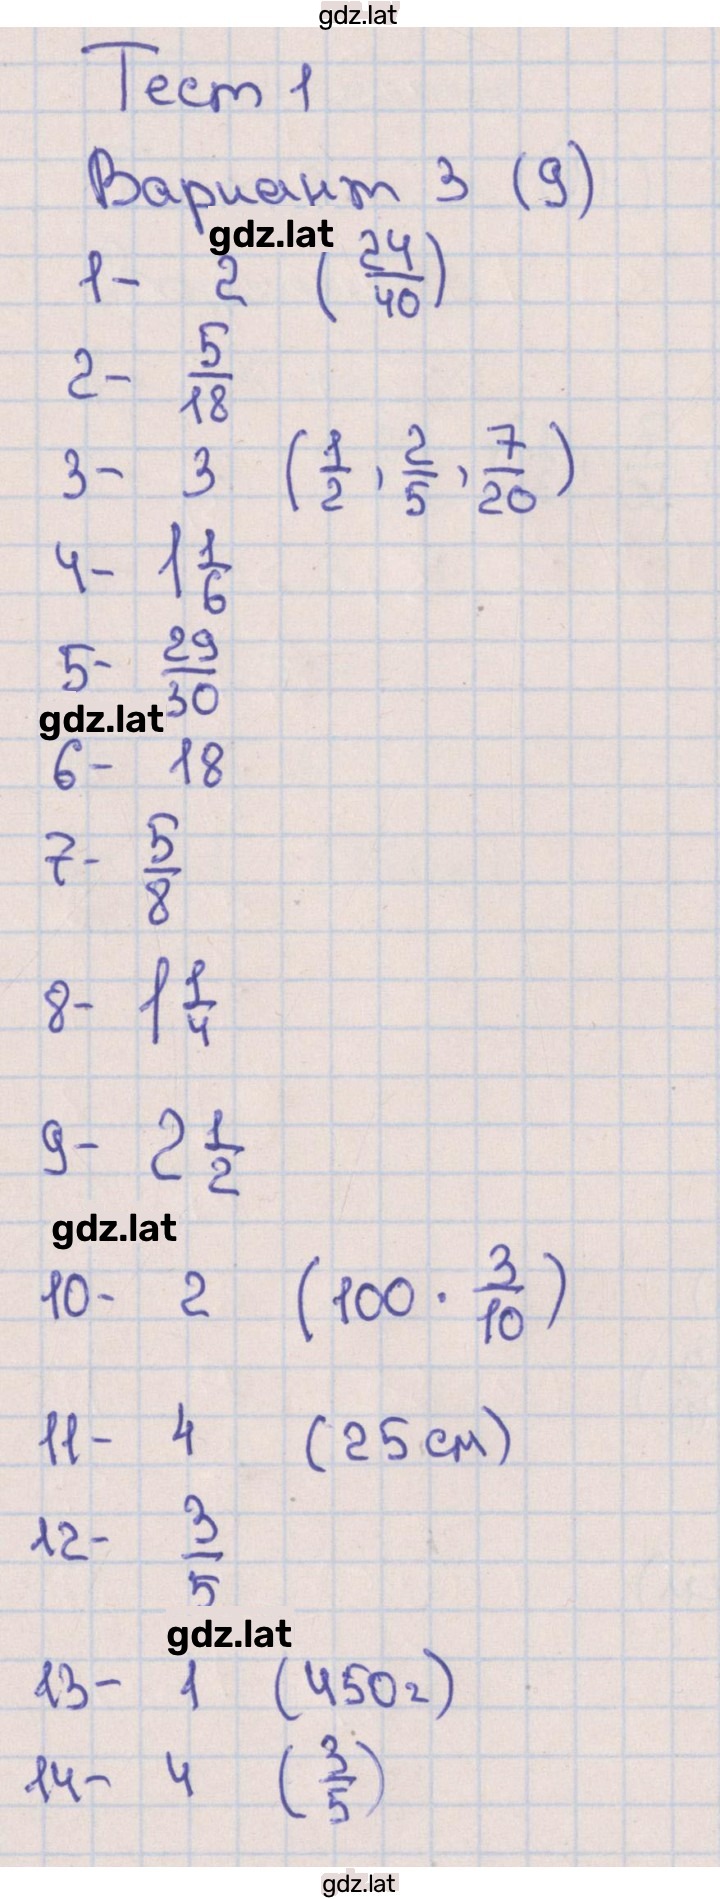 gdz.lat
Тест 1
Вариант 3 (9)
gdz.lat
1- 2 (24/40)
2- 5/18
3- 3 (1/2, 2/5, 7/20)
4- 1 1/6
5- 29/30
gdz.lat
6- 18
7- 5/8
8- 1 1/4
9- 2 1/2
gdz.lat
10- 2 (100 · 3/10)
11- 4 (25 см)
12- 3/5
gdz.lat
13- 1 (450г)
14- 4 (3/5)
gdz.lat